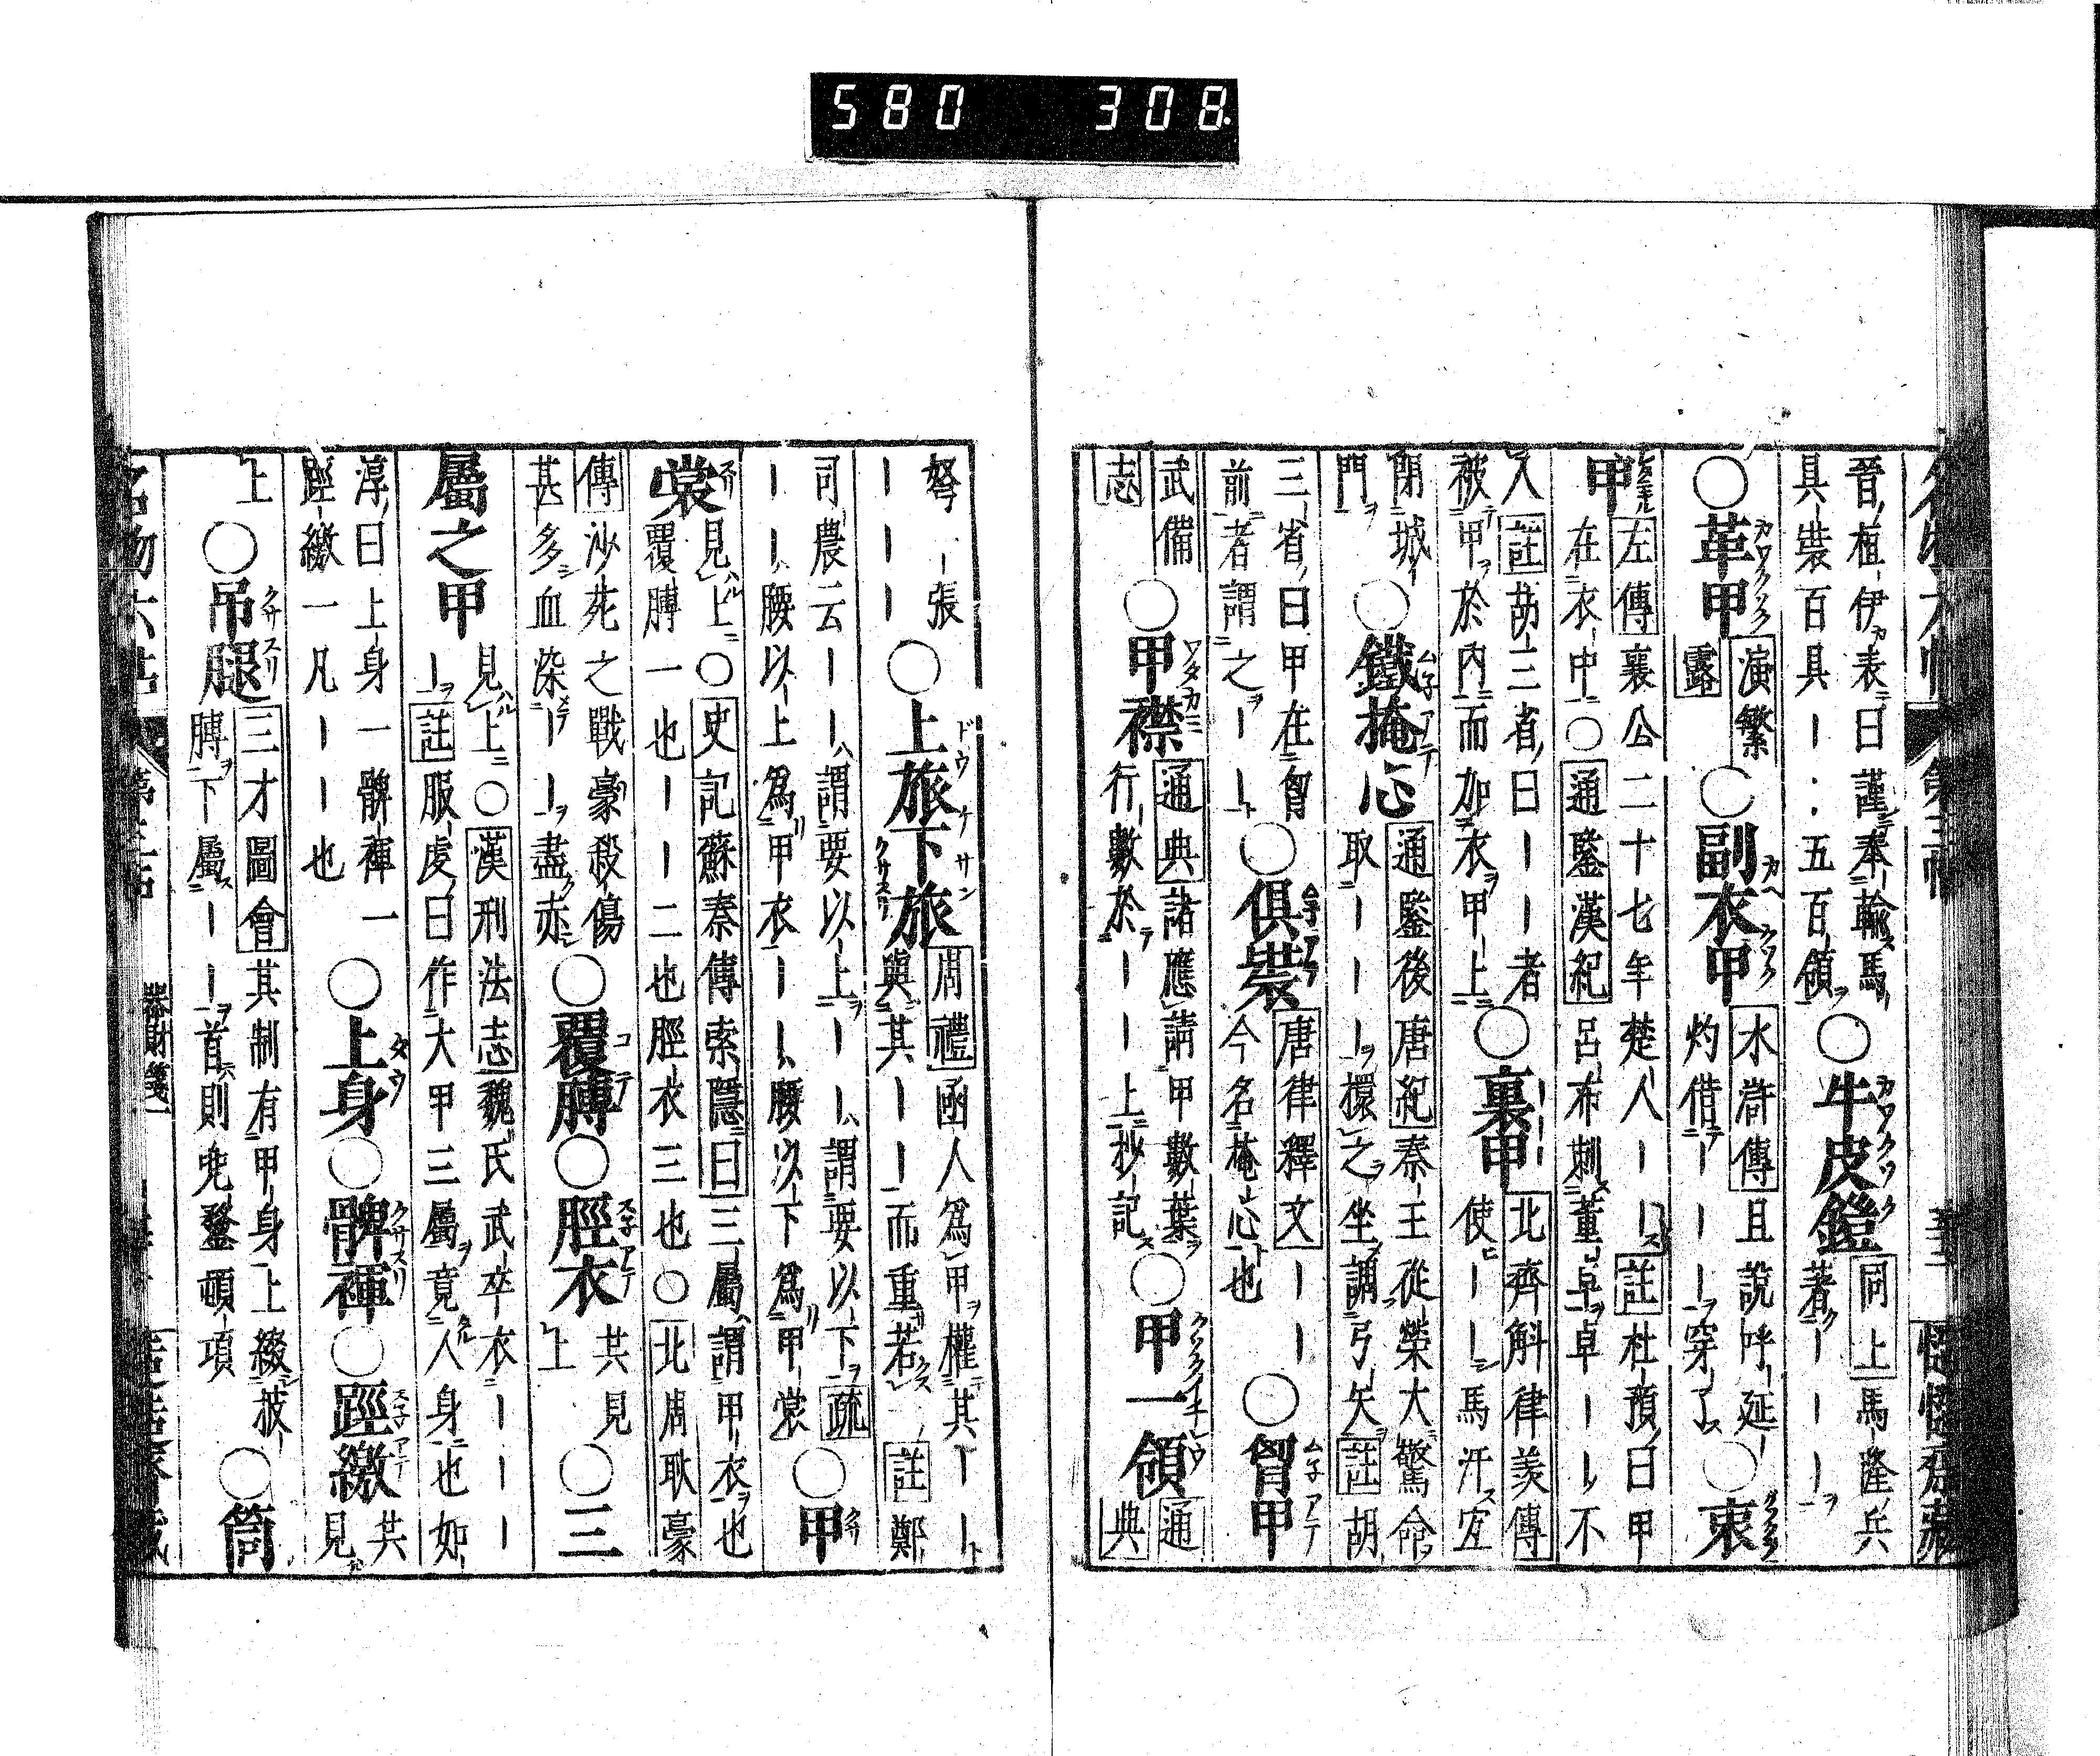 580 308
晉植伊表曰謹奉輸馬
具裝百具ー:五百領
○牛皮鎧
同上馬隆兵
著ーーー
○革甲
演繁
露
○副衣甲
水滸傳且說呼延
灼借ーーー穿了
○衷
甲
左傳襄公二十七年楚人ーー註杜預曰甲
在衣中○通鑒漢紀呂布刺董卓卓ーー不
入註胡三省曰ーー者
被甲於內而加衣甲上
○裏甲
北齊斛律羨傳
使ーー馬汗宜
閉城
門
○鐵掩心
通鑒後唐紀秦王從榮大驚命
取ーーー擐之坐調弓矢註胡
三省曰甲在胷
前者謂之ーー
○俱裝
唐律釋文ーー
今名掩心也
○胷甲
武備
志
○甲襟
通典諸應請甲數葉
行數於ーー上抄記
○甲一領
通
典
弩一張
ーーーー
○上旅下旅
周禮函人為甲權其ーー
與其ーー而重若一註鄭
司農云ーー謂要以上ーー謂要以下疏
ーー腰以上為甲衣ーー腰以下為甲裳
○甲
裳
見上○史記蘇秦傳索隱曰三屬謂甲衣也
覆膊一也ーー二也脛衣三也○北周耿豪
傳沙苑之戰豪殺傷
甚多血染ーー盡赤
○覆膊○脛衣
共見
上
○三
屬之甲
見上○漢刑法志魏氏武卒衣ーーー
ー註服虔曰作大甲三屬竟人身也如
淳曰上身一髀褌一
踁繳一凡ーー也
○上身○髀褌○踁繳
共
見
上
○吊腿
三才圖會其制有甲身上綴披
膊下屬ーー首則兜鍪頓項
○筒
器財箋